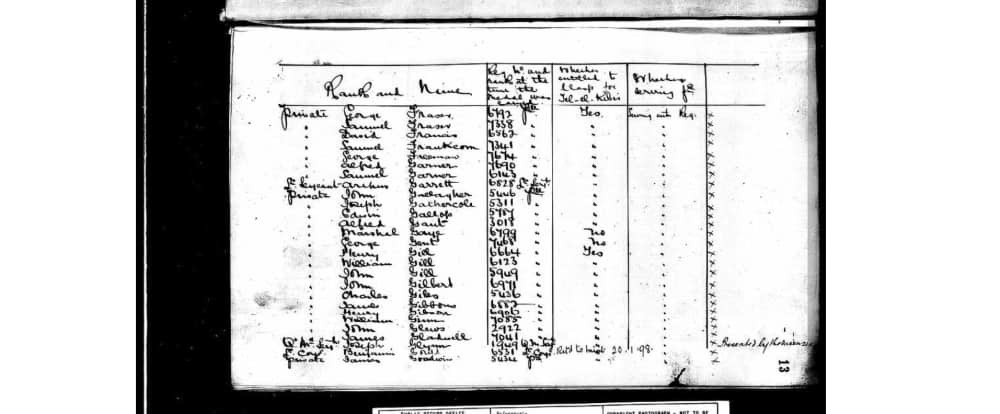 Rank and Name Reg No and rank at the time the medal was Whether entitled to Clasp for Tel-el-Kebir Whether serving
Private George Fraser 6792 Yes Serving with Reg.
" Samuel Fraser 7338 " "
" David Francis 6562 " "
" Samuel Frankcom 7341 " "
" George Freeman 7674 " "
" Alfred Garner 7690 " "
" Samuel Garner 6143 " "
Archer Garrett 6828 " "
Private John Gallagher 5446 " "
" Joseph Gathercole 5311 " "
" Edwin Gallop " "
" Alfred Gaut 3018 " "
" Marshal Gaye 6799 No "
" George Gent 7468 No "
" Henry Gill 6664 Yes "
" William Gill 6123 " "
" John Gill 5949 " "
" John Gilbert 6971 " "
" Charles Giles 5436 " "
" James Gibbons " "
" Henry Gibson 6906 " "
" William Gunn 7055 " "
" John 2922 " "
" James Gladwell 7041 " "
Joseph Glynn 1949 "
Benjamin 6531 20.1.98.
Private James Goodwin 5434 "
13
PUBLIC RECORD OFFICE
COPYRIGHT PHOTOGRAPH - NOT TO BE